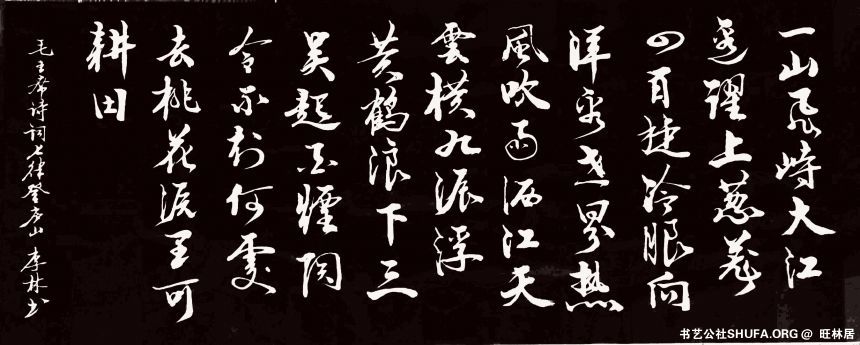 一山飛峙大江
邊躍上葱蘢
四百旋冷眼向
洋看世界熱
風吹雨洒江天
雲橫九派浮
黄鶴浪下三
吴起白煙陶
令不知何處
去桃花源里可
耕田
毛主席诗词七律登庐山 李林书
书艺公社SHUFA.ORG @ 旺林居